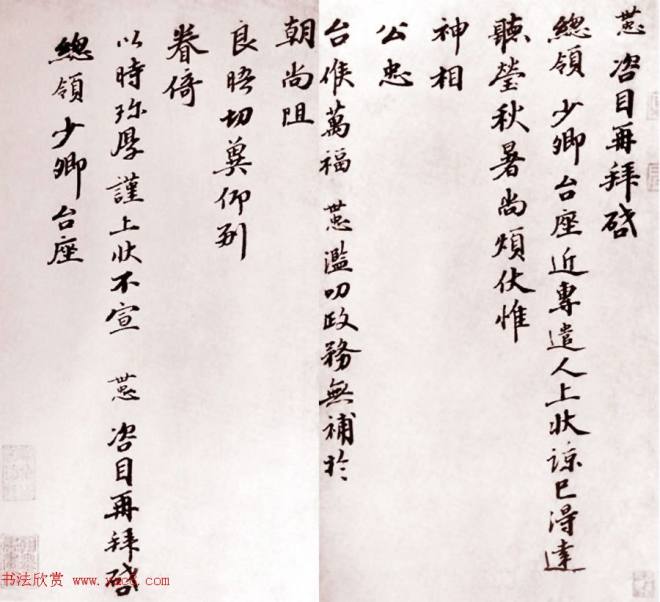 咨目再拜啓
總領少卿台座近專遣人上狀諒已得達
聽瑩秋暑尚煩伏惟
神相
公忠
台候萬福 濫叨政務無補於
朝尚阻
良晤切冀仰副
眷倚
以時珎厚謹上狀不宣 咨目再拜啓
總領少卿台座
书法欣赏